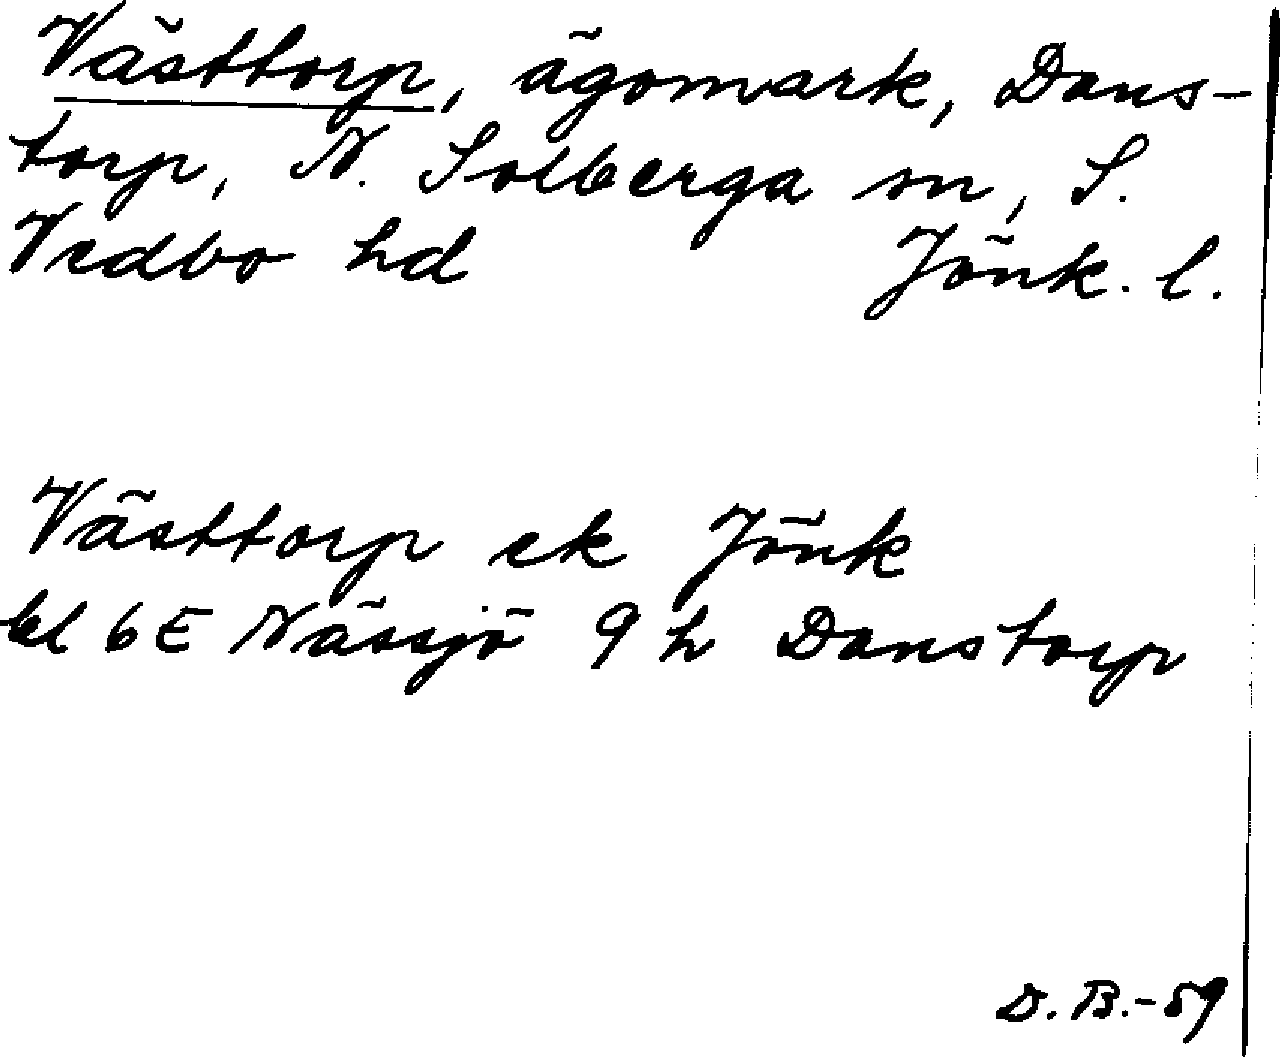 Västtorp, ägomark, Dans-
torp, N. Solberga sn, S.
Vedbo hd Jönk. l.
Västtorp ek Jönk
bl 6E Nässjö 9 h Danstorp
D. B. - 59